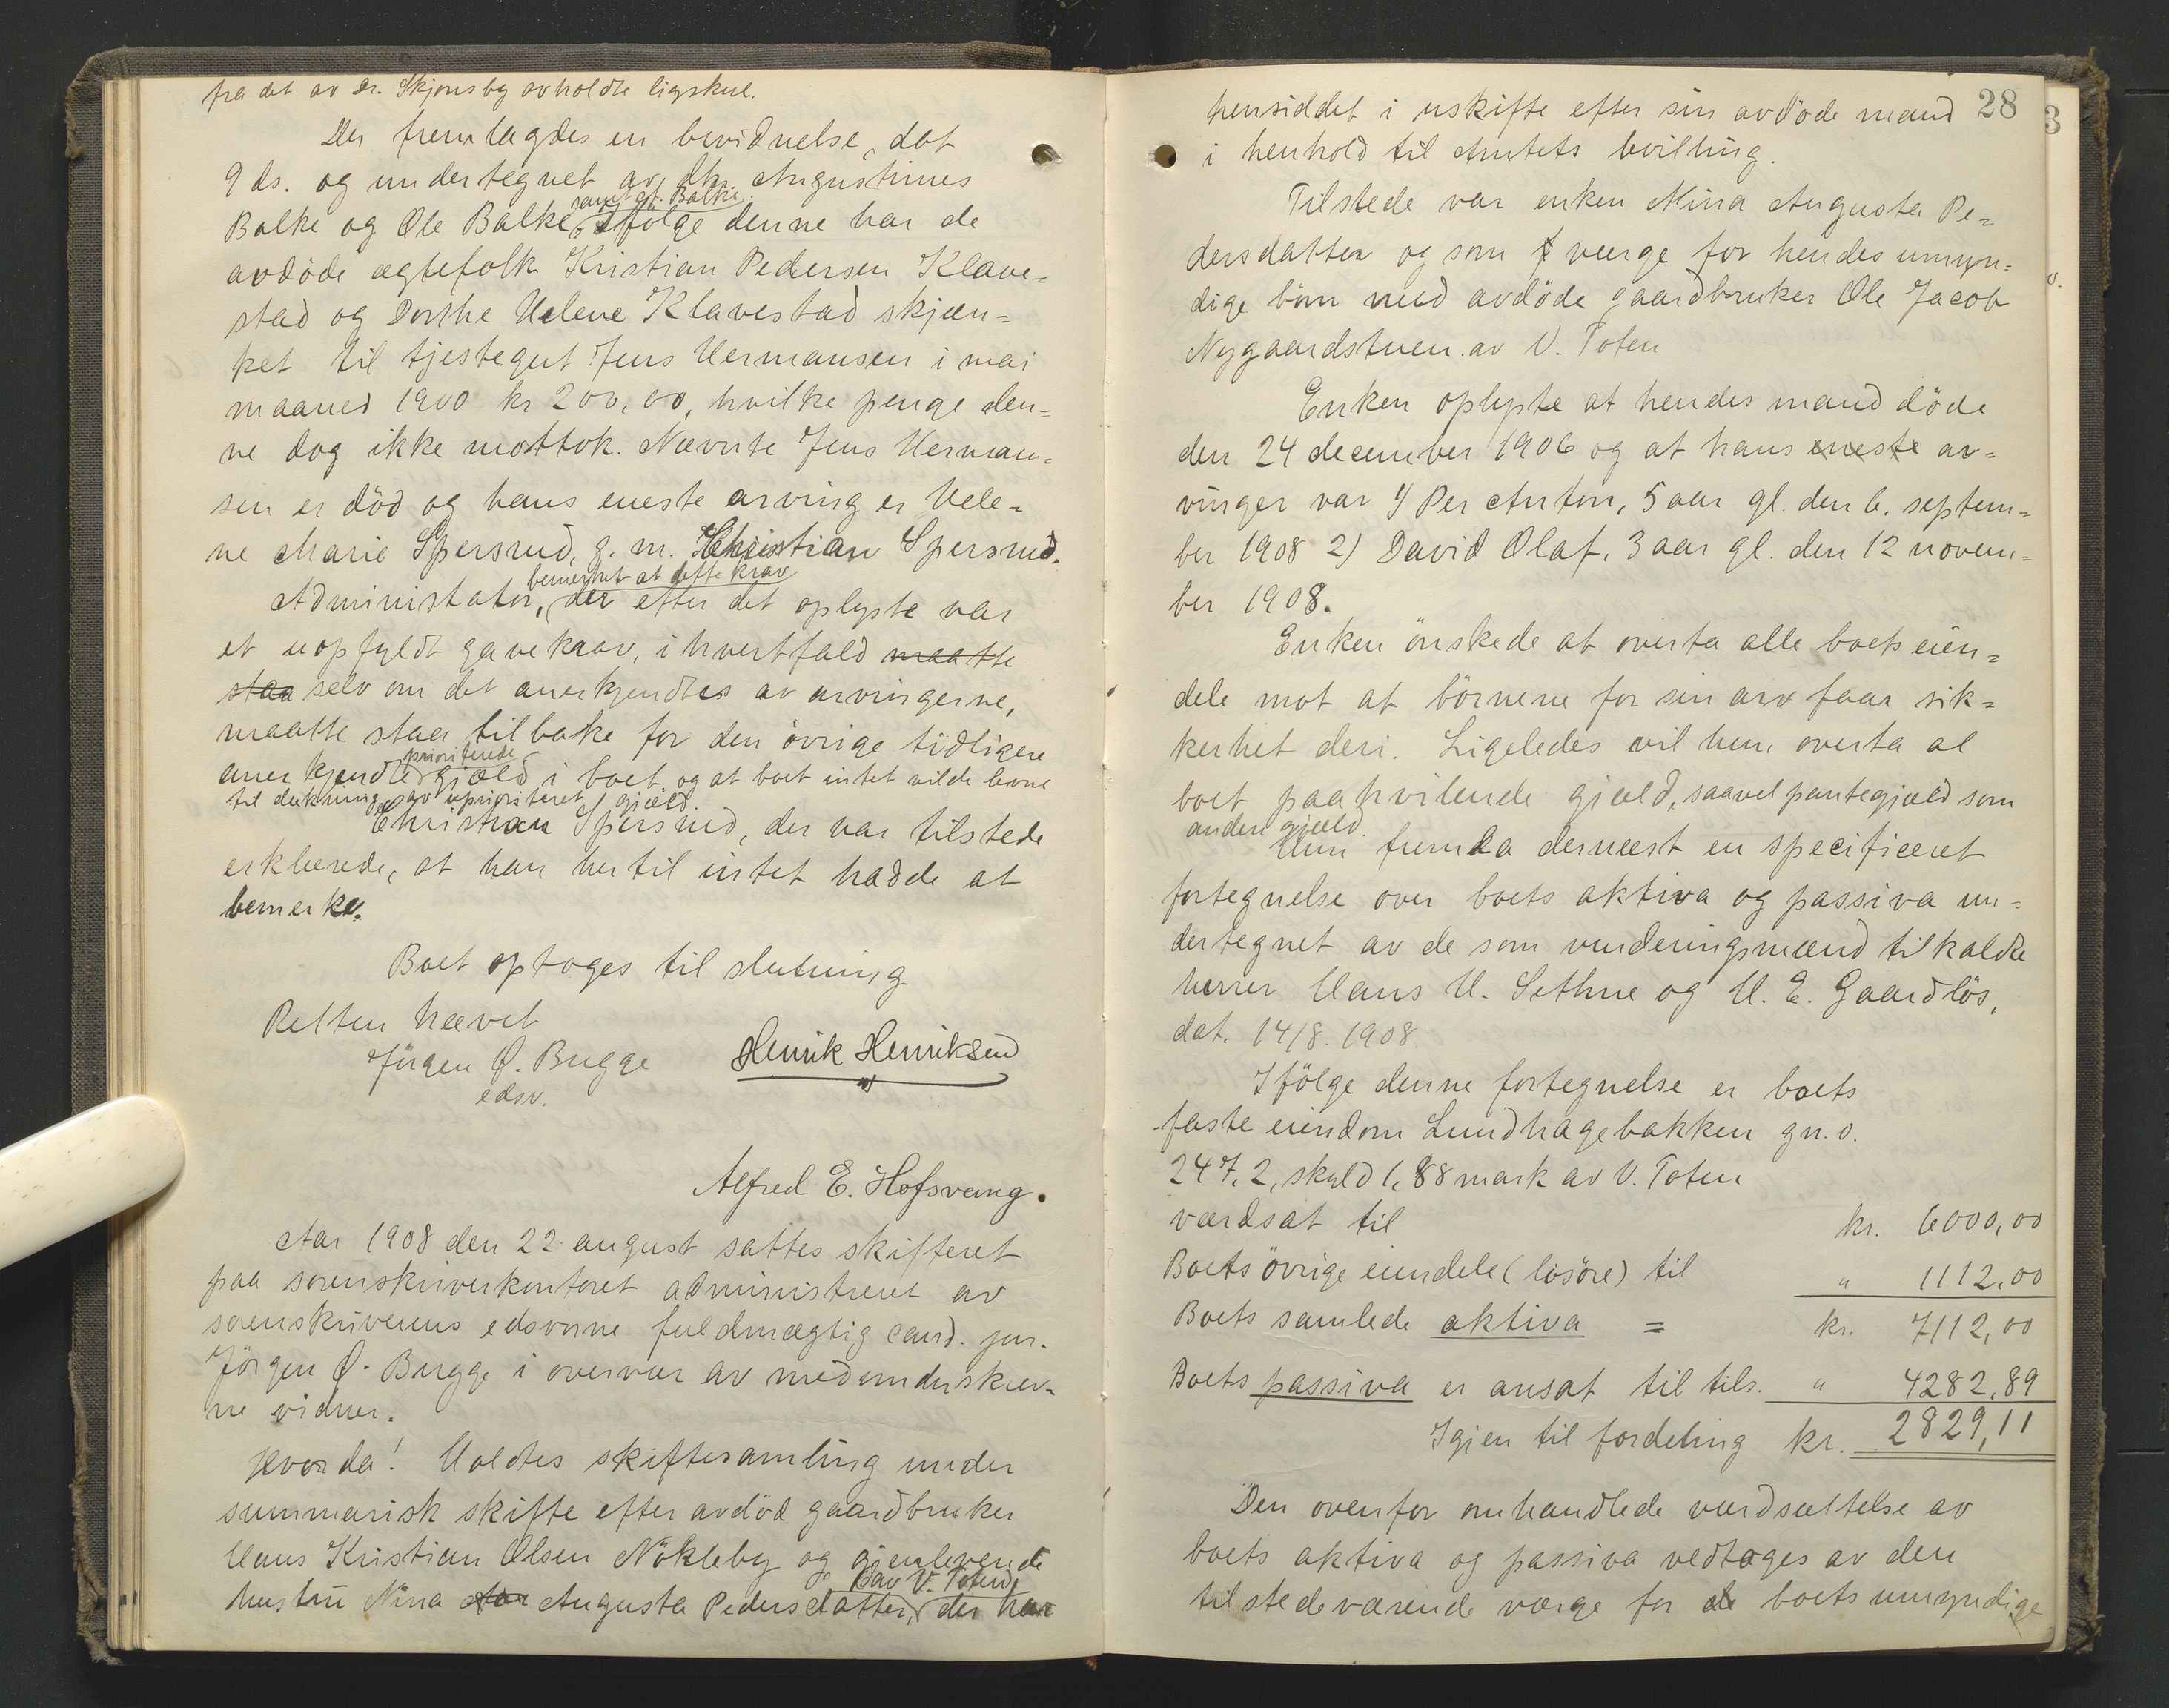 fra det av Dr. Skjønsby avholdte ligskue.
Der fremlagdes en bevidnelse, dat
9 ds. og undertegnet av dh. Augustinus
samt G. Balke
Balke og Ole Balke, Ifølge denne har de
avdøde ægtefolk Kristian Pedersen Klave=
stad og Dorthe Helene Klavestad skjæn=
ket til tjestegut Jens Hermansen i mai
maaned 1900 kr 200,00, hvilke penge den=
ne dog ikke mottok. Nævnte Jens Herman=
sen er død og hans eneste arving er Hele=
ne Marie Spersrud, g. m. Christian Spersrud.
bemerket at dette krav
Administator, der efter det oplyste var
et uopfyldt gavekrav, i hvertfald maatte
staa selv om det anerkjendtes av arvingerne,
maatte staa tilbake for den øvrige tidligere
prioriterede
anerkjendte gjæld i boet og at boet intet vilde levne
til dekning av uprioriteret gjæld.
Christian Spersrud, der var tilstede
erklærede, at han hertil intet hadde at
bemerke.
Boet optoges til slutning
Retten hævet
Jörgen Ø. Bugge
edsv.
Henrik Henriksen
Alfred E. Hofsvang.
Aar 1908 den 22 august sattes skifteret
paa sorenskriverkontoret administreret av
sorenskriverens edsvorne fuldmægtig cand. jur.
Jörgen Ø. Bugge i overvær av medunderskrev-
ne vidner.
Hvorda! Holdtes skiftesamling under
summarisk skifte efter avdöd gaardbruker
Hans Kristian Olsen Nökleby og gjenlevende
av V. Toten
hustru Nina Augusta Pedersdatter, der har
28
3
hensiddet i uskifte efter sin avdöde mand
i henhold til Amtets bevilling.
Tilstede var enken Nina Augusta Pe=
dersdatter og som værge for hendes umyn=
dige börn med avdöde gaardbruker Ole Jacob
Nygaardstuen av V. Toten
Enken oplyste at hendes mand döde
den 24 december 1906 og at hans eneste ar=
vinger var 1) Per Anton, 5 aar gl. den 6. septem=
ber 1908 2) David Olaf, 3 aar gl. den 12 novem=
ber 1908.
Enken önskede at overta alle boets eien=
dele mot at börnene for sin arv faar sik=
kerhet deri. Ligeledes vil hun overta al
boet paahvilende gjæld, saavel pantegjæld som
anden gjæld.
Hun fremla dernæst en specificeret
fortegnelse over boets aktiva og passiva un=
dertegnet av de som vurderingsmænd tilkaldte
herrer Hans H. Sethne og H. E. Gaardlös,
dat. 14/8. 1908.
Ifölge denne fortegnelse er boets
faste eiendom Lundhagebakken gn. o.
247, 2, skyld 1,88 mark av V. Toten
værdsat til kr. 6000,00
Boets övrige eiendele (lösöre) til " 1112,00
Boets samlede aktiva = kr. 7112,00
Boets passiva er ansat til tils. " 4282,89
Igjen til fordeling kr. 2829,11
Den ovenfor omhandlede værdsættelse av
boets aktiva og passiva vedtoges av den
tilstedeværende værge for de boets umyndige